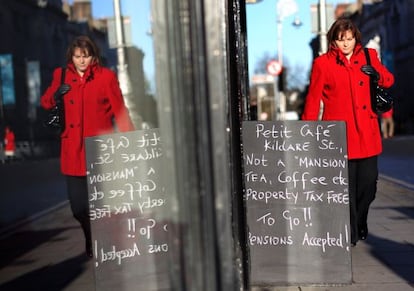 Petit Café
Kildare St.,
Not a "MANSION"
Tea, Coffee etc
Property Tax Free
To Go!!
Pensions Accepted!